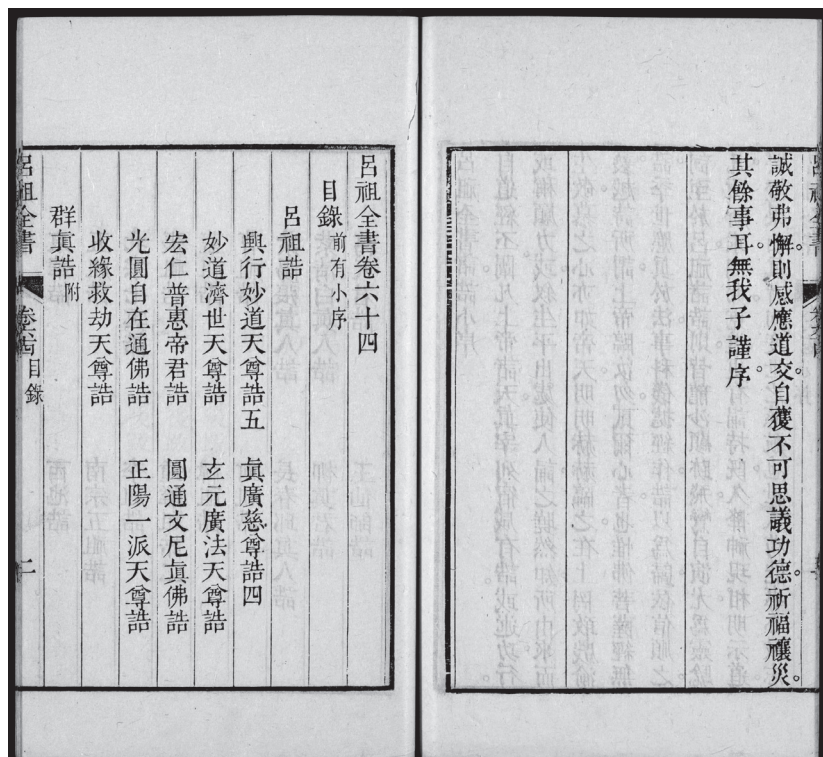 誠敬弗懈。則感應道交。自獲不可思議功德。祈福禳災。
其餘事耳。無我子謹序。
呂祖全書卷六十四
目錄 前有小序
呂祖誥
興行妙道天尊誥五　眞廣慈尊誥四
妙道濟世天尊誥　玄元廣法天尊誥
宏仁普惠帝君誥　圓通文尼眞佛誥
光圓自在通佛誥　正陽一派天尊誥
收緣救劫天尊誥
群眞誥 附
呂祖全書　卷六十四 目錄　二